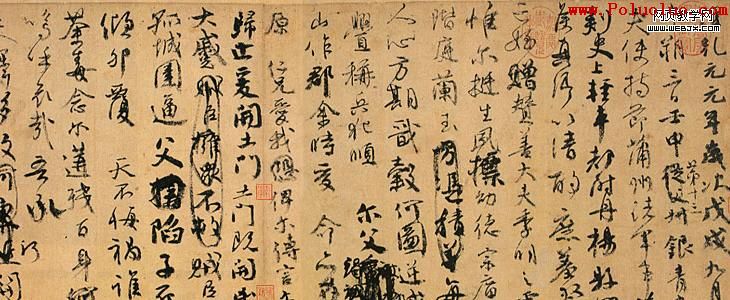 乾元元年歲次戊戌九月
朔三日壬申第十三從父叔銀青
夫使持節蒲州諸軍事
刺史上輕車都尉丹楊縣
侯真卿以清酌庶羞
亡姪贈贊善大夫季明之
惟爾挺生夙標幼德宗廟
階庭蘭玉方憑積善每
人心方期戩穀何圖逆
釁稱兵犯順 爾父
山作郡余時受 命亦
原 仁兄愛我俾爾傳言
歸止爰開土門土門既開
大蹙賊臣擁眾不救賊臣
孤城圍逼父陷子死
傾卵覆 天不悔禍誰
荼毒念爾遘殘百身
嗚呼哀哉吾承
www.Poluoluo.c
网页教学网
www.webjx.com